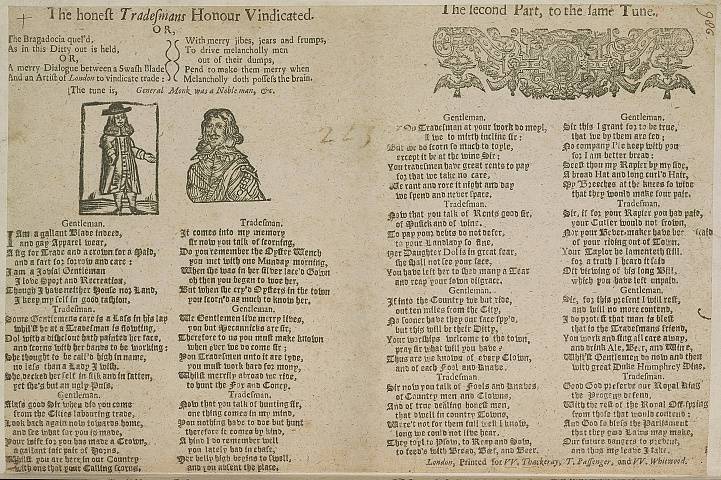 The honest Tradesmans Honour Vindicated.
OR,
The Bragadocia quel'd,
As in this Ditty out is held,
OR,
A merry Dialogue between a Swash Blade
And an Artist of London to vindicate trade:
With merry jibes, jears and frumps,
To drive melancholly men
out of their dumps,
Pend to make them merry when
Melancholly doth possess the brain.
The tune is, General Monk was a Noble man, &c.
Gentleman.
I Am a gallant Blade indeed,
and gay Apparel wear,
A fig for Trade and a crown for a Maid,
and a fart for sorrow and care:
I am a Jovial Gentleman
I love Sport and Recreation,
Though I have neither House nor Land,
I keep my self in good fashion.
Tradesman.
Some Gentlemens care is a Lass in his lap
whilst he at a Tradesman is flowting,
Dol with a dishclout hath painted her face,
and scorns with her hands to be working:
She thought to be call'd high in name,
no less than a Lady I wish.
She decked her self in silk and in satten,
yet she's but an ugly Puss.
Gentleman.
Alass good Sir when did you come
from the Cities labouring trade,
Look back again now towards home,
and see what for you is made,
Your wife for you has made a Crown,
a gallant fair pair of Horns,
Whilst you are here in our Country
with one that your Calling scorns.
Tradesman.
It comes into my memory
sir now you talk of scorning,
Do you remember the Oyster Wench
you met with one Munday morning,
When she was in her silver lace'd Gown
oh then you began to woe her,
But when she cry'd Oysters in the town
you scorn'd as much to know her.
Gentleman.
We Gentlemen live merry lives,
you but Mecannicks are sir,
Therefore to us you must make known
when ever we do come sir;
You Tradesmen unto it are tyde,
you must work hard for mony,
Whilst merrily abroad we ride,
to hunt the Fox and Coney.
Tradesman.
Now that you talk of hunting sir,
one thing comes in my mind,
You nothing have to doe but hunt
therefore it comes by kind,
A hind I do remember well
you lately had in chase,
Her belly high begins to swell,
and you absent the place.
The second Part, to the same Tune.
986
Gentleman.
You Tradesmen at your work do moyl,
we to mirth incline sir:
But we do scorn so much to toyle,
except it be at the wine Sir:
You tradesmen have great rents to pay
for that we take no care,
We rant and rore it night and day
we spend and never spare.
Tradesman.
Now that you talk of Rents good sir,
of Musick and of wine,
To pay your debts do not defer,
to your Landlady so fine,
Her Daughter Dol is in great fear,
she shall not see your face,
You have left her to shed many a Tear
and reap your own disgrace.
Gentleman.
If into the Country we but ride,
but ten miles from the City,
No sooner have they our face spy'd,
but this will be their Ditty,
Your worships welcome to the town,
pray sir what will you have,
Thus are we known of every Clown,
and of each Fool and Knave.
Tradesman
Sir now you talk of Fools and Knaves
of Country men and Clowns,
And of true dealing honest men,
that dwell in country Towns,
Were't not for them full well I know,
long we could not live here,
They toyl to Plow, to Reap and Sow,
to feed's with Bread, Beef, and Beer.
Gentleman.
Sir this I grant for to be true,
that we by them are fed;
No company I'le keep with you
for I am better bread:
Seest thou my Rapier by my side,
A broad Hat and long curl'd Hair,
My Breeches at the knees so wide
that they would make four pair.
Tradesman.
Sir, if for your Rapier you had paid,
your Cutler would not frown,
Nor your Bever-maker have
of your riding out of Town.
Your Taylor he lamenteth still,
for a truth I heard it said
Of viewing of his long Bill,
which you have left unpaid.
Gentleman.
Sir, for this present I will rest,
and will no more contend,
I do protest that man is blest
that to the Tradesmans friend,
You work and sing all care away,
and drink Ale, Beer, and Wine,
Whilst Gentlemen do now and then
with great Duke Humphrey Dine.
Tradesman.
Good God preserve our Royal King
the Progeny defend,
With the rest of the Royal Off-spring
from those that would contend:
And God so bless the Parliament
that they good Laws may make,
Our future dangers to prevent,
and thus my leave I take.
London, Printed for W. Thackeray, T. Passenger, and W. Whitwood.